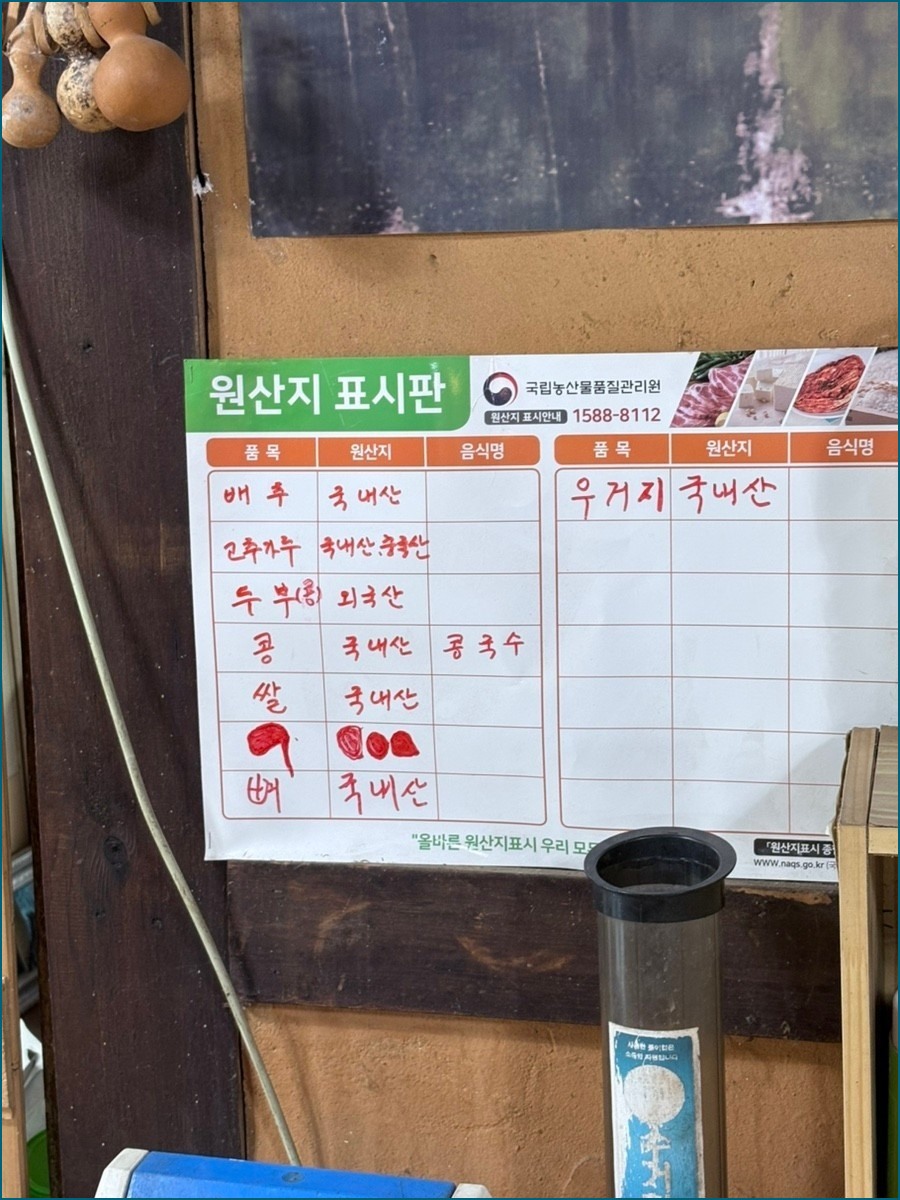 원산지 표시판
국립농산물품질관리원
원산지 표시안내 1588-8112
품 목 원산지 음식명
배 추 국내산
고추가루 국내산.중국산
두 부(콩) 외국산
콩 국내산 콩국수
쌀 국내산
뼈 국내산
품 목 원산지 음식명
우거지 국내산
"올바른 원산지표시 우리 모두
「원산지표시 종합
www.naqs.go.kr